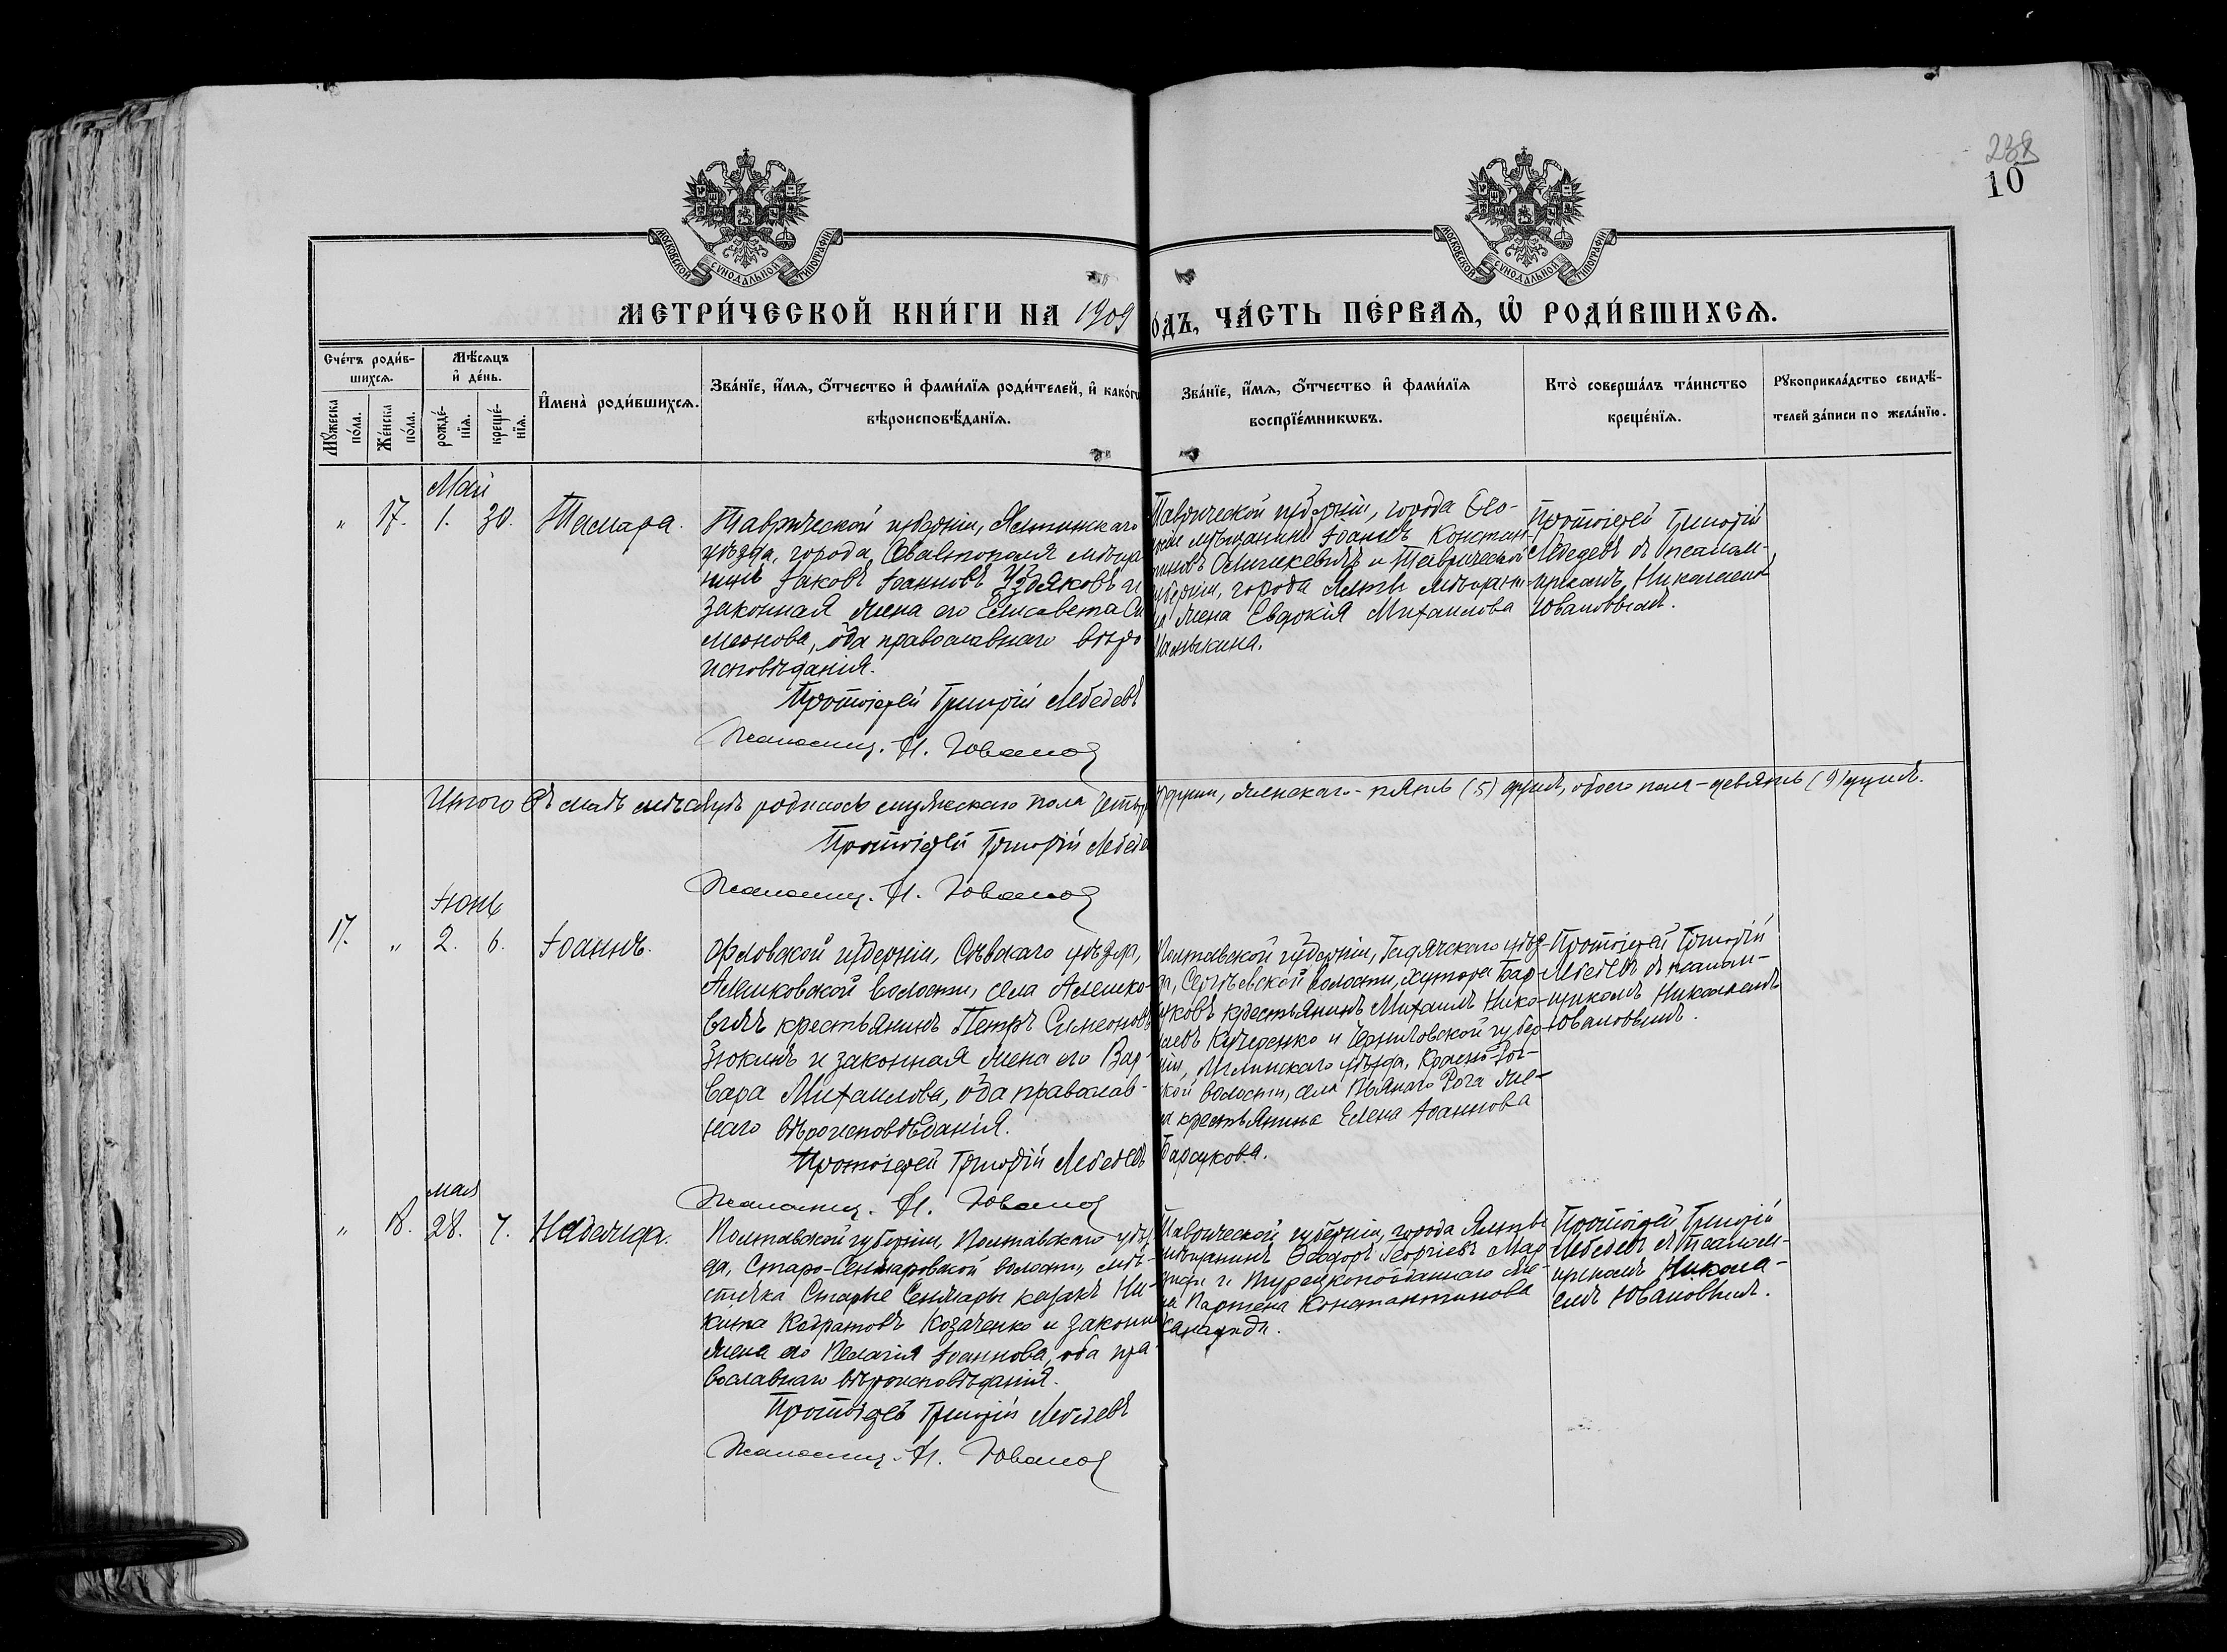 238
10
МОСКОВСКОЙ СѴНОДАЛЬНОЙ ТИПОГРАФІИ
МОСКОВСКОЙ СѴНОДАЛЬНОЙ ТИПОГРАФІИ
МЕТРИ́ЧЕСКОЙ КНИ́ГИ НА 1909
О́ДЪ, ЧА́СТЬ ПЕ́РВАѦ, Ѡ҆ РОДИ́ВШИХСѦ.
Сче́тъ роди́в-
шихсѧ.
Мꙋ́жеска
по́ла.
Же́нска
по́ла.
Мѣ́сѧцъ
и҆ де́нь.
рожде́-
нїѧ.
креще́-
нїѧ.
И҆мена̀ роди́вшихсѧ.
Зва́нїе, и҆́мѧ, ѻ҆́тчество и҆ фами́лїѧ роди́телей, и҆ како́гѡ
вѣроисповѣ́данїѧ.
Зва́нїе, и҆́мѧ, ѻ҆́тчество и҆ фами́лїѧ
воспрїе́мникѡвъ.
Кто̀ соверша́лъ та́инство
креще́нїѧ.
Рꙋкоприкла́дство свидѣ́-
телей за́писи по жела́нїю.
Май
" 17. 1. 30. Тамара.
Таврической губерніи, Ялтинскаго
уѣзда, города Севастополя мѣща
нинъ Іаковъ Іоанновъ и
законная жена его Елисавета Си
меонова, оба православнаго вѣро
исповѣданія.
Протоіерей Григорій Лебедевъ
Псаломщ. Н. Іовано
Таврической губерніи, города Ѳео-
мѣщанинъ Іоаннъ Констан-
тиновъ и Таврической
губерніи, города Ялты мѣщани-
на жена Евдокія Михаилова
Протоіерей Григорій
Лебедевъ съ псалом-
щикомъ Николаемъ
Іовановымъ.
Итого въ маѣ мѣсяцѣ родилось мужескаго пола четыр
женскаго - пять (5) душъ, обоего пола - девять (9) душъ.
Протоіерей Григорій Лебеде
Псаломщ. Н. Іовано
Іюнь
17. " 2. 6. Іоаннъ.
Орловской губерніи, Сѣвскаго уѣзда,
Алешковской волости, села Алешко-
вичъ крестьянинъ Петръ Симеоновъ
Зюкинъ и законная жена его Вар-
вара Михаилова, оба православ-
наго вѣроисповѣданія.
Протоіерей Григорій Лебедевъ
Псаломщ. Н. Іовано
Полтавской губерніи, Гадячскаго уѣз-
да, Сергѣевской волости, хутора Бар-
крестьянинъ Михаилъ Нико-
лаевъ Кучеренко и Черниговской губер-
ніи, Мглинскаго уѣзда,
кой волости, села Пьянаго Рога же-
на крестьянина Елена Іоаннова
Барсукова.
Протоіерей Григорій
Лебедевъ съ псалом-
щикомъ Николаемъ
Іовановымъ.
мая
" 18. 28. 7. Надежда.
Полтавской губерніи, Полтавскаго уѣз
да, Старо-Сенжаровской волости, мѣ-
стечка Старые Сенжары козакъ Ни-
кита Кодратовъ Козаченко и законн
жена его Пелагія Іоаннова, оба пра-
вославнаго вѣроисповѣданія.
Протоіерей Григорій Лебедевъ
Псаломщ. Н. Іовано
Таврической губерніи, города Ялты
мѣщанинъ Ѳеодоръ Георгіевъ Мар
и Турецкоподданнаго же-
на Партена Константинова
Протоіерей Григорій
Лебедевъ съ псалом-
щикомъ Никола-
емъ Іовановымъ.